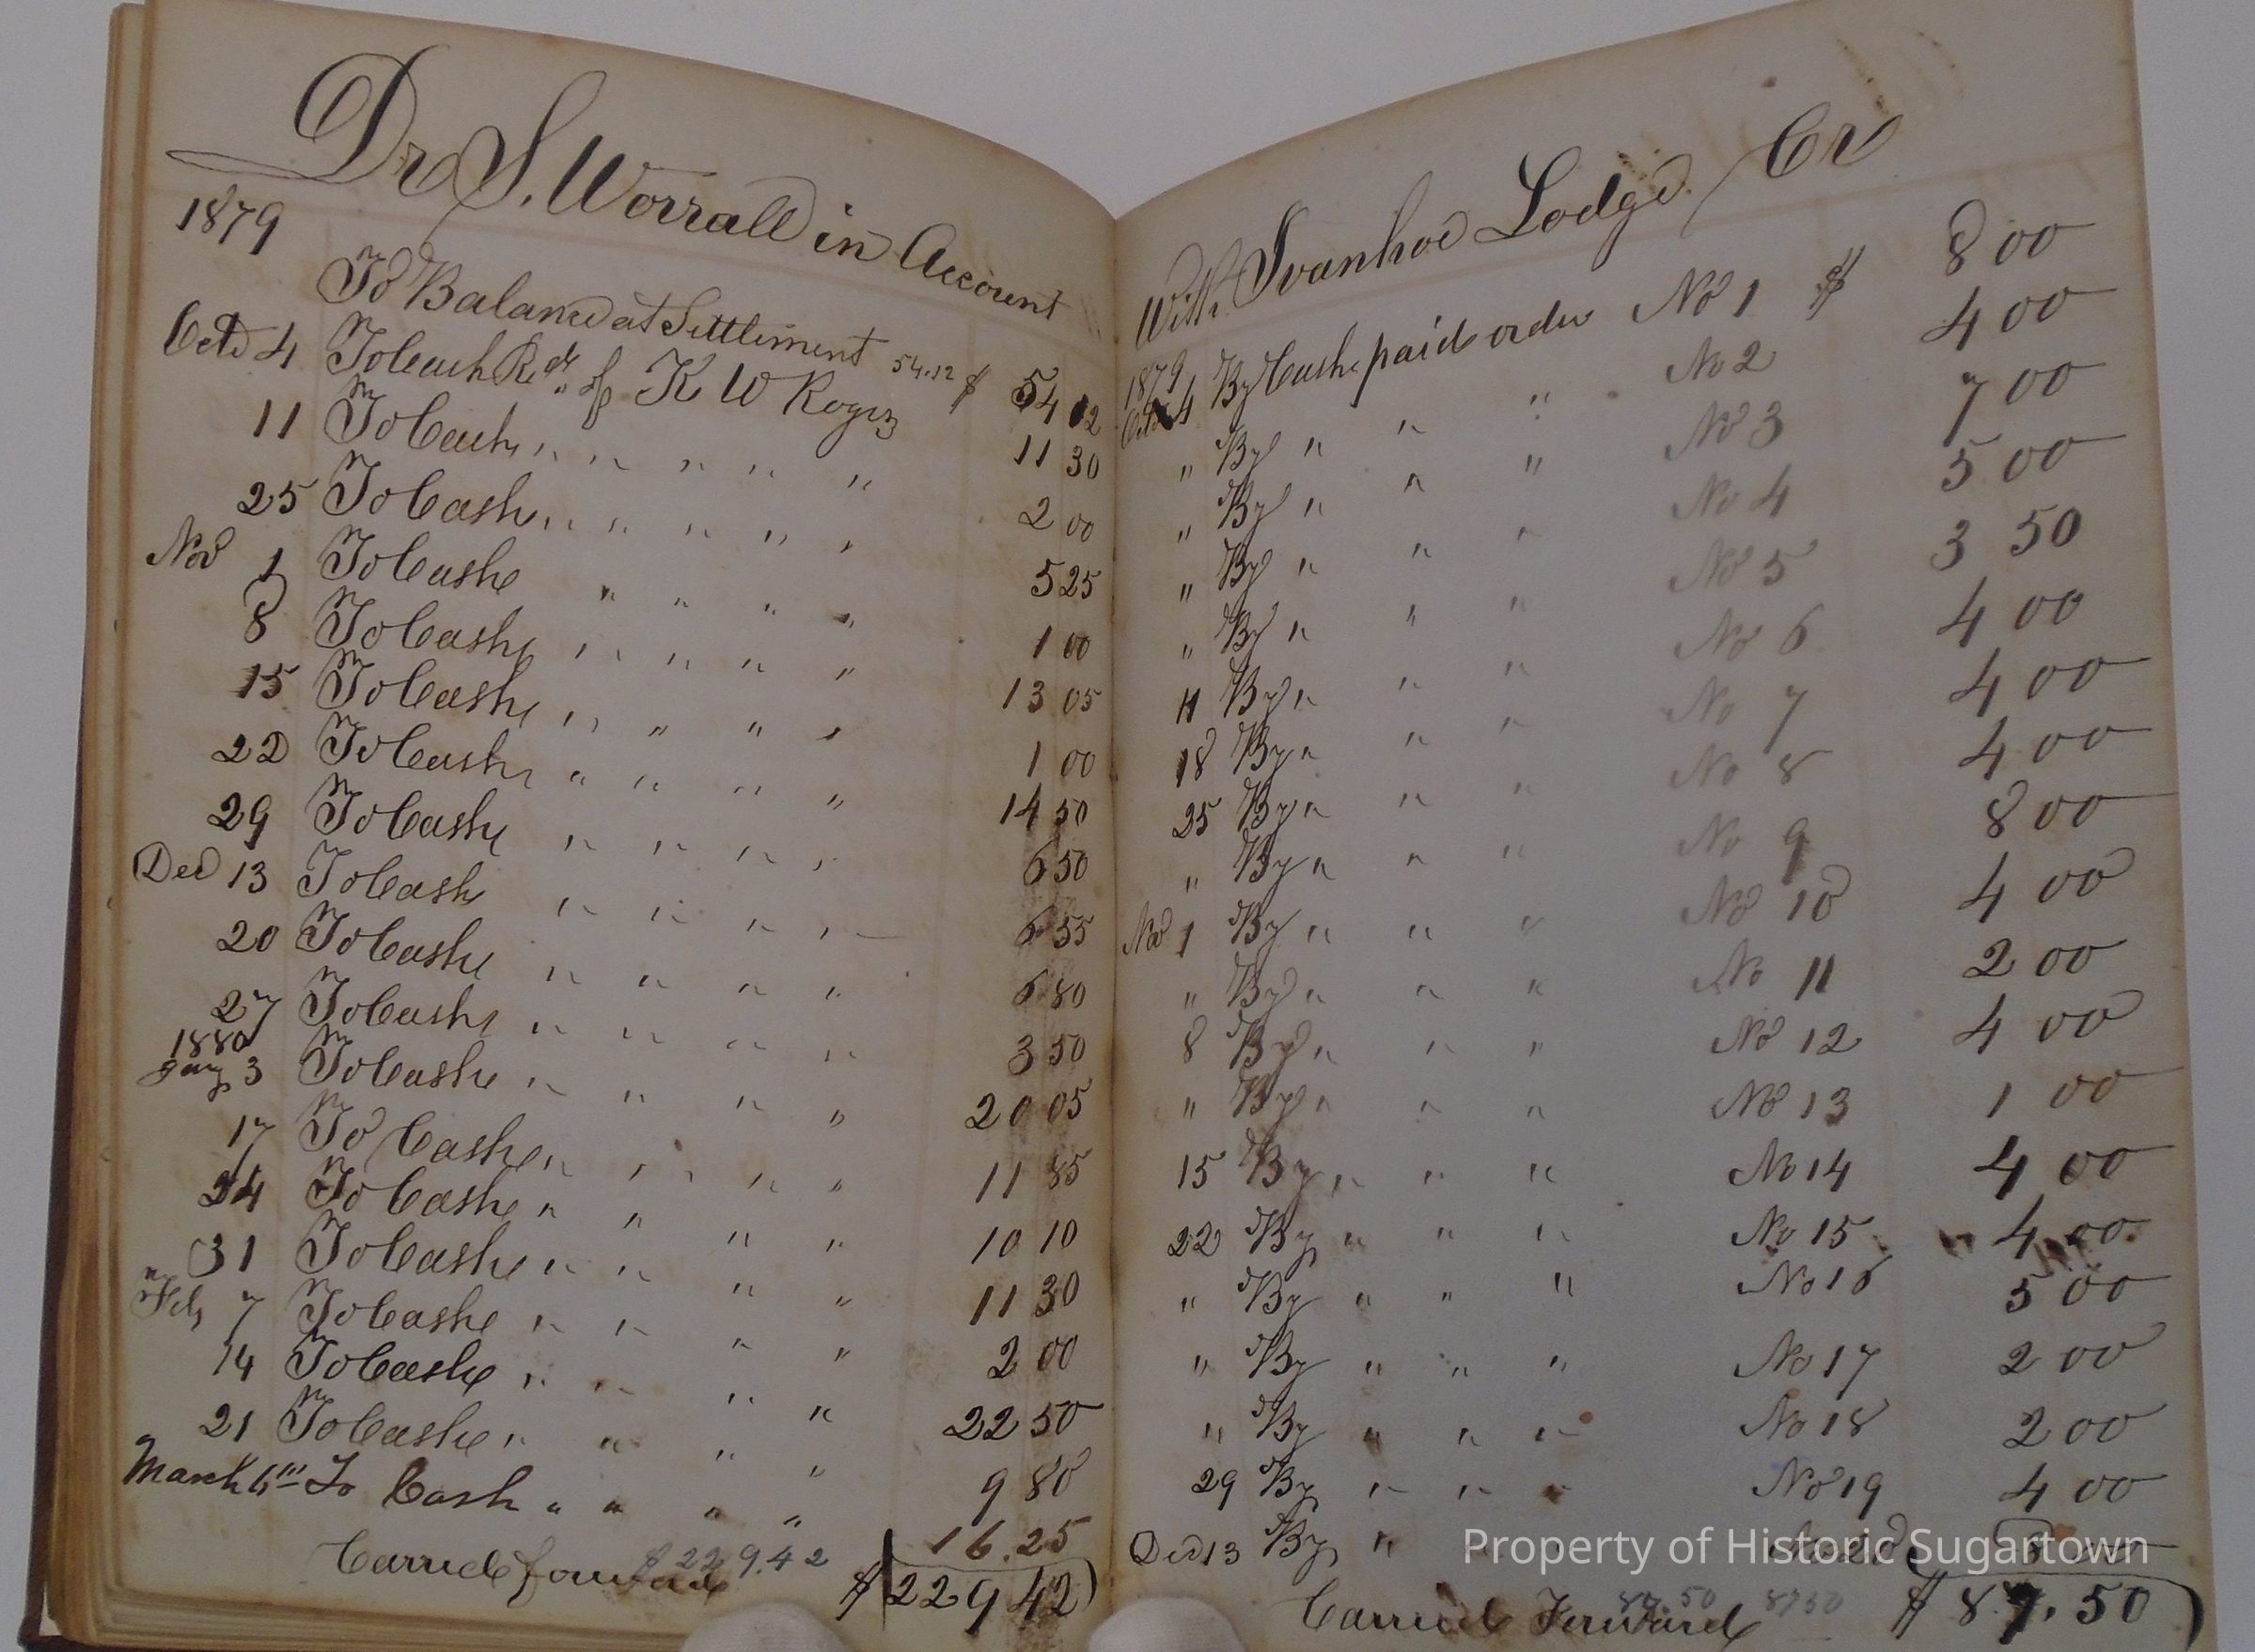 Dr S. Worrall in Account
1879
To Balance at Settlement 54.12 $ 54 12
Oct 4 To Cash Recd of K W Rogers 11 30
11 To Cash " " " " " 2 00
25 To Cash " " " " " 5 25
Nov 1 To Cash " " " " 1 00
8 To Cash " " " " " 13 05
15 To Cash " " " " 1 00
22 To Cash " " " " 14 50
29 To Cash " " " " 6 50
Dec 13 To Cash " " " " 6 55
20 To Cash " " " " 6 80
27 To Cash " " " " 3 50
1880
Jany 3 To Cash " " " " 20 05
17 To Cash " " " " " 11 85
24 To Cash " " " " 10 10
31 To Cash " " " " 11 30
Feb 7 To Cash " " " " 2 00
14 To Cash " " " " 22 50
21 To Cash " " " " 9 80
March 6th To Cash " " " " 16.25
Carried forward $229.42 $ 229 42
With Ivanhoe Lodge Cr
1879
Oct 4 By Cash paid order No 1 $ 8 00
" By " " " No 2 4 00
" By " " " No 3 7 00
" By " " " No 4 5 00
" By " " " No 5 3 50
11 By " " " No 6 4 00
18 By " " " No 7 4 00
25 By " " " No 8 4 00
" By " " " No 9 8 00
Nov 1 By " " " No 10 4 00
" By " " " No 11 2 00
8 By " " " No 12 4 00
" By " " " No 13 1 00
15 By " " " No 14 4 00
22 By " " " No 15 4 00
" By " " " No 16 5 00
" By " " " No 17 2 00
" By " " " No 18 2 00
29 By " " " No 19 4 00
Dec 13 By "
Carried Forward 87.50 87 50 $ 87.50
Property of Historic Sugartown